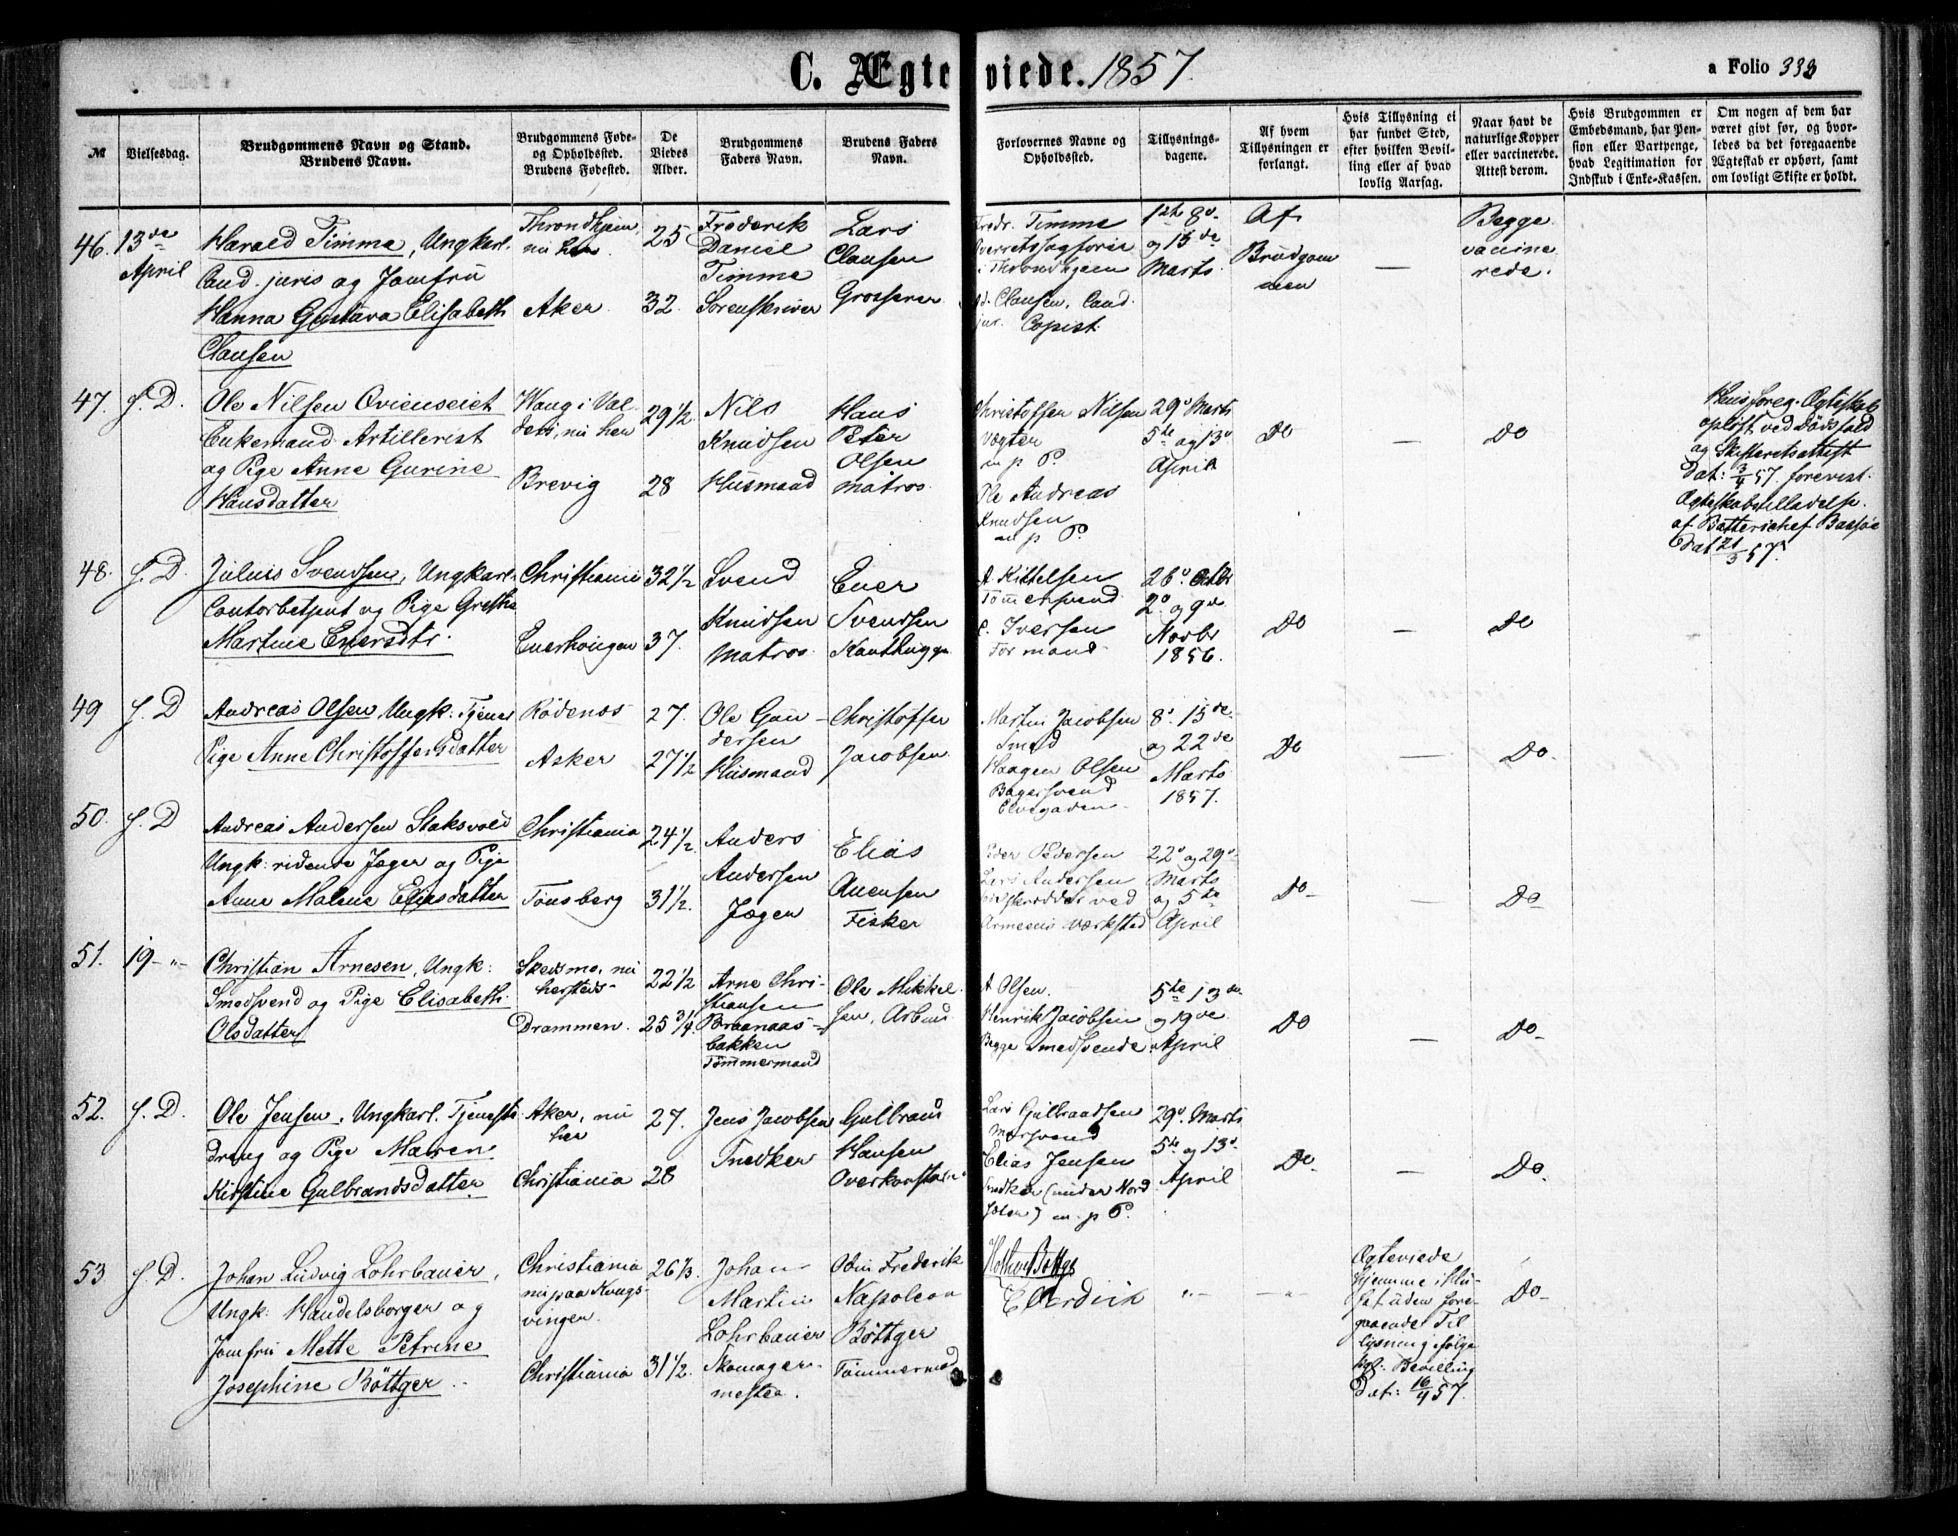 C. Ægteviede. 1857.
a Folio 333
№
Vielsesdag.
Brudgommens Navn og Stand.
Brudens Navn.
Brudgommens Føde-
og Opholdssted.
Brudens Fødested.
De
Viedes
Alder.
Brudgommens
Faders Navn.
Brudens Faders
Navn.
Forlovernes Navne og
Opholdssted.
Tillysnings-
dagene.
Af hvem
Tillysningen er
forlangt.
Hvis Tillysning ei
har fundet Sted,
efter hvilken Bevil-
ling eller af hvad
lovlig Aarsag.
Naar havt de
naturlige Kopper
eller vaccinerede.
Attest derom.
Hvis Brudgommen er
Embedsmand, har Pen-
sion eller Vartpenge,
hvad Legitimation for
Indskud i Enke-Kassen.
Om nogen af dem har
været gift før, og hvor-
ledes da det foregaaende
Ægteskab er ophørt, samt
om lovligt Skifte er holdt.
46.
13de
April
Harald Timme, Ungkarl.
Cand. juris og Jomfru
Hanna Gustava Elisabeth
Clausen
Throndhjem
nu her
Aker
25
32.
Frederik
Daniel
Timme
Sorenskriver
Lars
Clausen
Grosserer
Fredr. Timme
Overretssagfører
i Throndhjem
Clausen, Cand.
jur. Copist.
1ste 8de
og 15de
Marts
Af
Brudgom
men
—
Begge
vaccine
rede.
47.
S. D.
Ole Nilsen Qvienseiet
Enkemand Artillerist
og Pige Anne Gurine
Hansdatter
Wang i Val-
ders, nu her
Brevig
29 1/2
28
Nils
Knudsen
Husmand
Hans
Peter
Olsen
Matros
Christoffer Nilsen
Vægter
m p P.
Ole Andreas
Knudsen
m p P.
29de Marts
5te og 13de
April
Do
—
Do
Hans foreg. Ægteskab
opløst ved Dødsfald
og Skifteretsattest
Dat: 3/4 57. forevist.
Ægteskabstilladelse
af Batterichef Bassøe
Dat 21/3 57.
48.
S. D.
Julius Svendsen, Ungkarl.
Contorbetjent og Pige Grethe
Martine Enersdtr.
Christiania
Enerhougen
32 1/2
37.
Svend
Knudsen
Matros
Ener
Svendsen
A Kittelsen
Tømersvend
C. Iversen
Formand
26de Octbr
2de og 9de
Novbr
1856.
Do
—
Do
49
S. D
Andreas Olsen, Ungk: Tjener
Pige Anne Christoffersdatter
Rödenes
Asker
27.
27 1/2
Ole Gun-
dersen
Husmand
Christoffer
Jacobsen
Martin Jacobsen
Smed
Haagen Olsen
Bagersvend
Elvegaden
8de 15de
og 22de
Marts
1857.
Do
—
Do.
50.
S. D
Andreas Andersen Staksvold
Ungk: ridende Jæger og Pige
Anne Malene Eliasdatter
Christiania
Tönsberg
24 1/2
31 1/2.
Anders
Andersen
Jæger
Elias
Auensen
Fisker
Peder Pedersen
Lars Andersen
ved
Armeens Værksted
22de og 29de
Marts
og 5te
April
Do
—
Do
51.
19-"-
Christian Arnesen, Ungk:
Smedsvend og Pige Elisabeth
Olsdatter
Skedsmo, nu
hersteds
Drammen
22 1/2
25 3/4.
Arne Chri-
stiansen
Braanaas-
bakken
Tömmermand
Ole Mikkel-
sen, Arbm.
A Olsen.
Henrik Jacobsen
Begge Smedsvende
5te 13de
og 19de
April
Do
—
Do
52.
S. D.
Ole Jensen, Ungkarl. Tjeneste
dreng og Pige Maren
Kirstine Gulbrandsdatter
Aker, nu
her
Christiania
27.
28
Jens Jacobsen
Snedker
Gulbrand
Hansen
Overkonstabel
Lars Gulbrandsen
Mursvend
Elias Jensen
Snedker (under Nord
) m. p P.
29de Marts
5te og 13de
April
Do.
—
Do.
53
S. D.
Johan Ludvig Lohrbauer,
Ungk: Handelsborger og
Jomfru Mette Petrine
Josephine Böttger
Christiania
nu paa Kongs-
vinger.
Christiania
26 1/3
31 1/2.
Johan
Martin
Lohrbauer
Skomager-
mester.
Frederik
Napoleon
Böttger
Tömmermand
"-
—"—
Ægteviede
hjemme i Hu-
set uden fore-
gaaende Til
lysning ifølge
kgl: Bevilling
Dat: 16/4 57.
Do